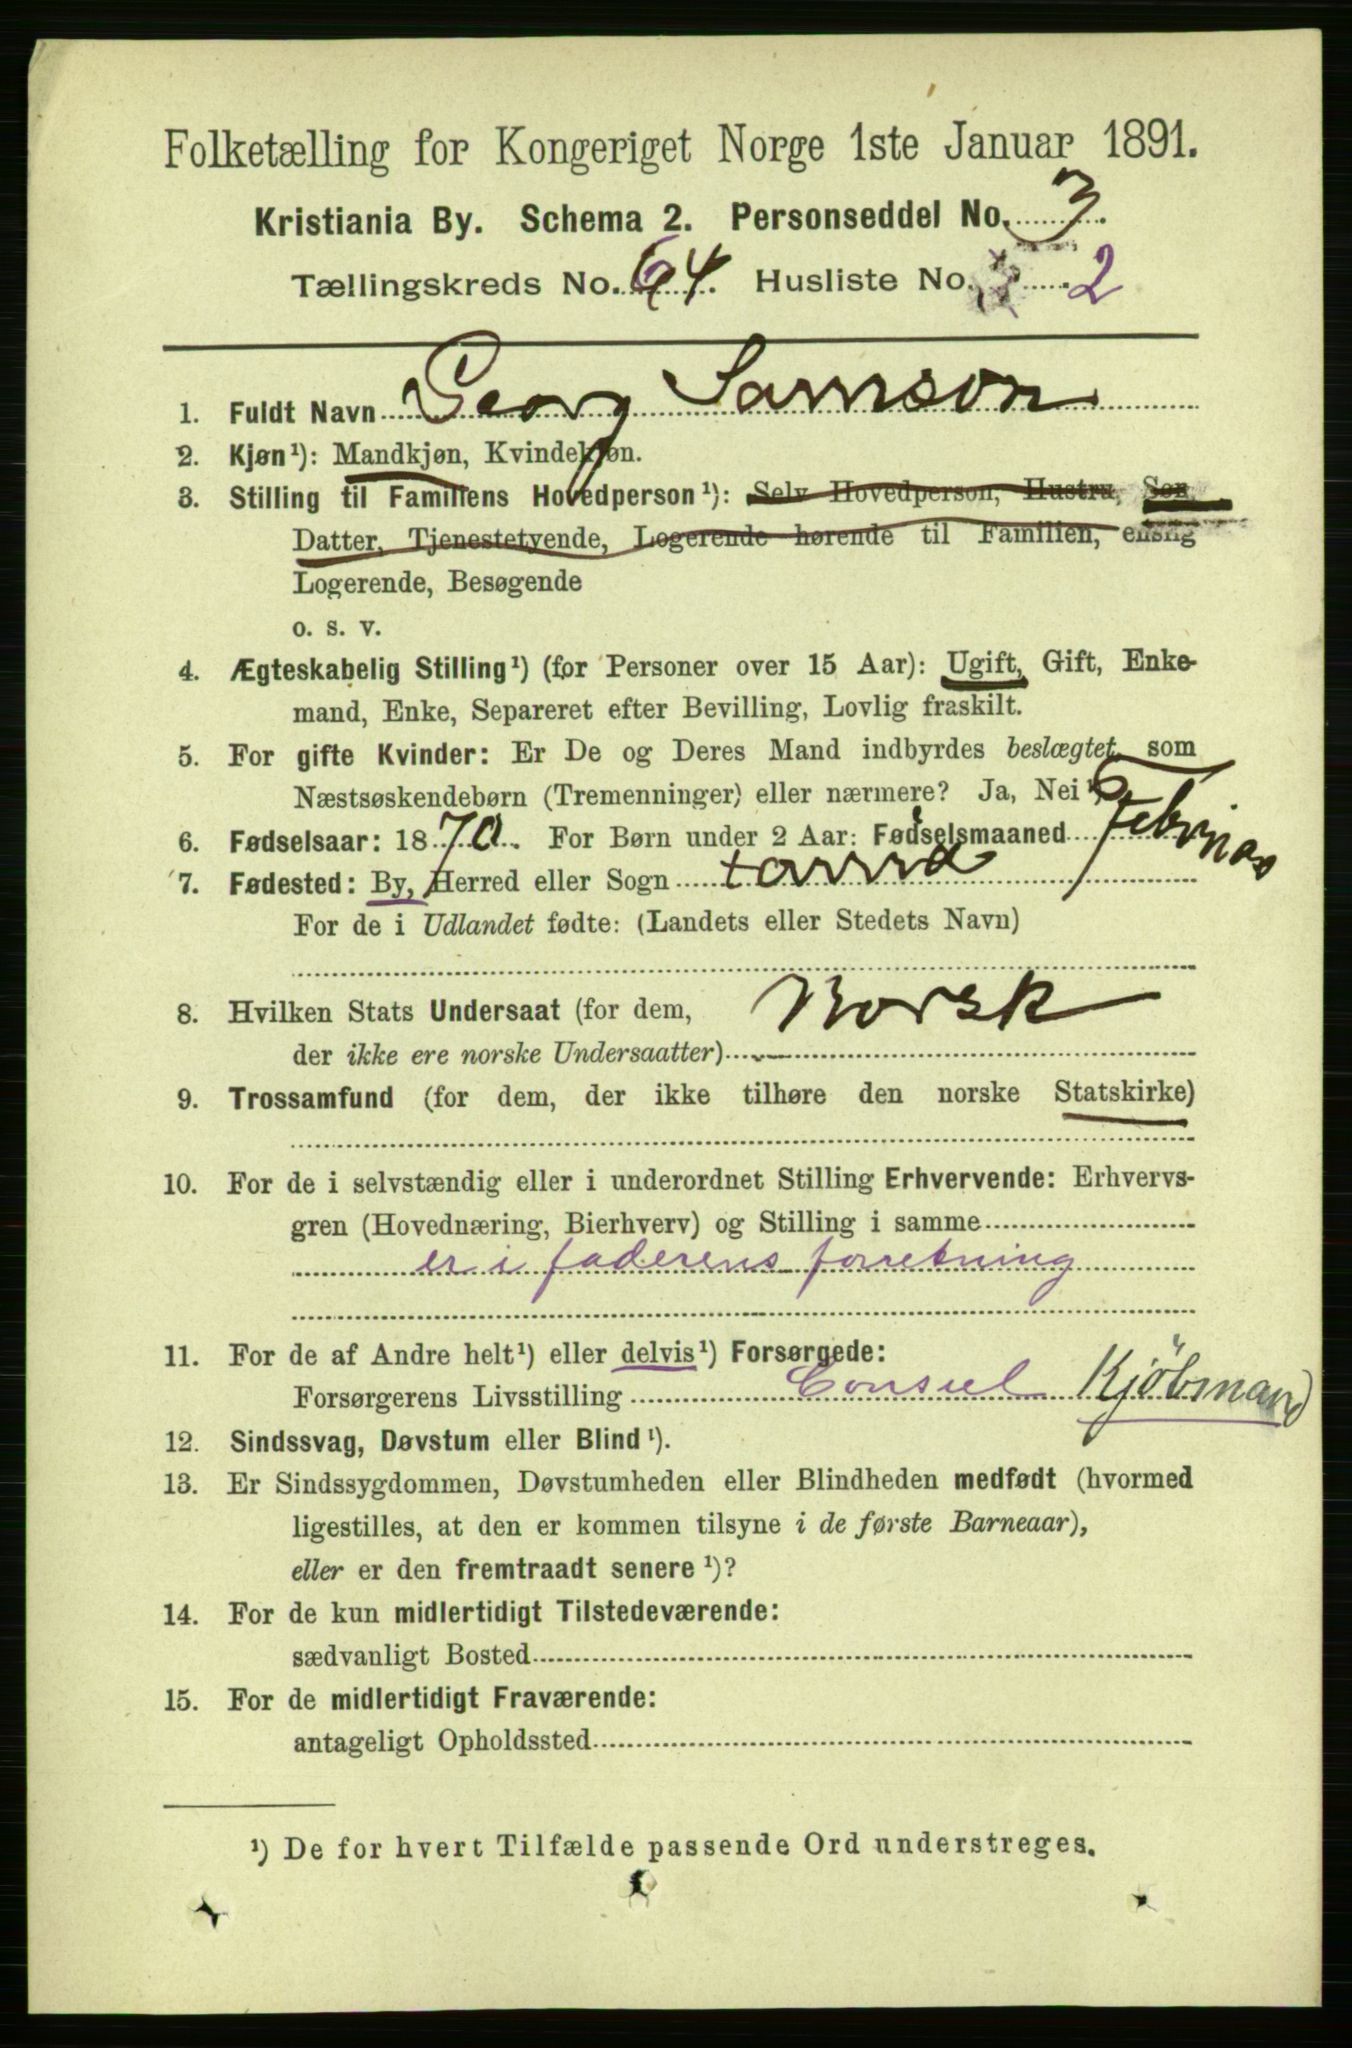 Folketælling for Kongeriget Norge 1ste Januar 1891.
Kristiania By. Schema 2. Personseddel No. 3.
Tællingskreds No. 64. Husliste No. 2
1. Fuldt Navn Georg Samson
2. Kjøn¹): Mandkjøn, Kvindekjøn.
3. Stilling til Familiens Hovedperson¹): Selv Hovedperson, Hustru, Søn,
Datter, Tjenestetyende, Logerende hørende til Familien, enslig
Logerende, Besøgende
o. s. v.
4. Ægteskabelig Stilling¹) (for Personer over 15 Aar): Ugift, Gift, Enke-
mand, Enke, Separeret efter Bevilling, Lovlig fraskilt.
5. For gifte Kvinder: Er De og Deres Mand indbyrdes beslægtet som
Næstsøskendebørn (Tremenninger) eller nærmere? Ja, Nei¹)
6. Fødselsaar: 1870. For Børn under 2 Aar: Fødselsmaaned Februar
7. Fødested: By, Herred eller Sogn
For de i Udlandet fødte: (Landets eller Stedets Navn)
8. Hvilken Stats Undersaat (for dem, Norsk
der ikke ere norske Undersaatter)
9. Trossamfund (for dem, der ikke tilhøre den norske Statskirke)
10. For de i selvstændig eller i underordnet Stilling Erhvervende: Erhvervs-
gren (Hovednæring, Bierhverv) og Stilling i samme
er i faderens forretning
11. For de af Andre helt¹) eller delvis¹) Forsørgede:
Forsørgerens Livsstilling Consul Kjöbmand
12. Sindssvag, Døvstum eller Blind¹).
13. Er Sindssygdommen, Døvstumheden eller Blindheden medfødt (hvormed
ligestilles, at den er kommen tilsyne i de første Barneaar),
eller er den fremtraadt senere¹)?
14. For de kun midlertidigt Tilstedeværende:
sædvanligt Bosted
15. For de midlertidigt Fraværende:
antageligt Opholdssted
¹) De for hvert Tilfælde passende Ord understreges.